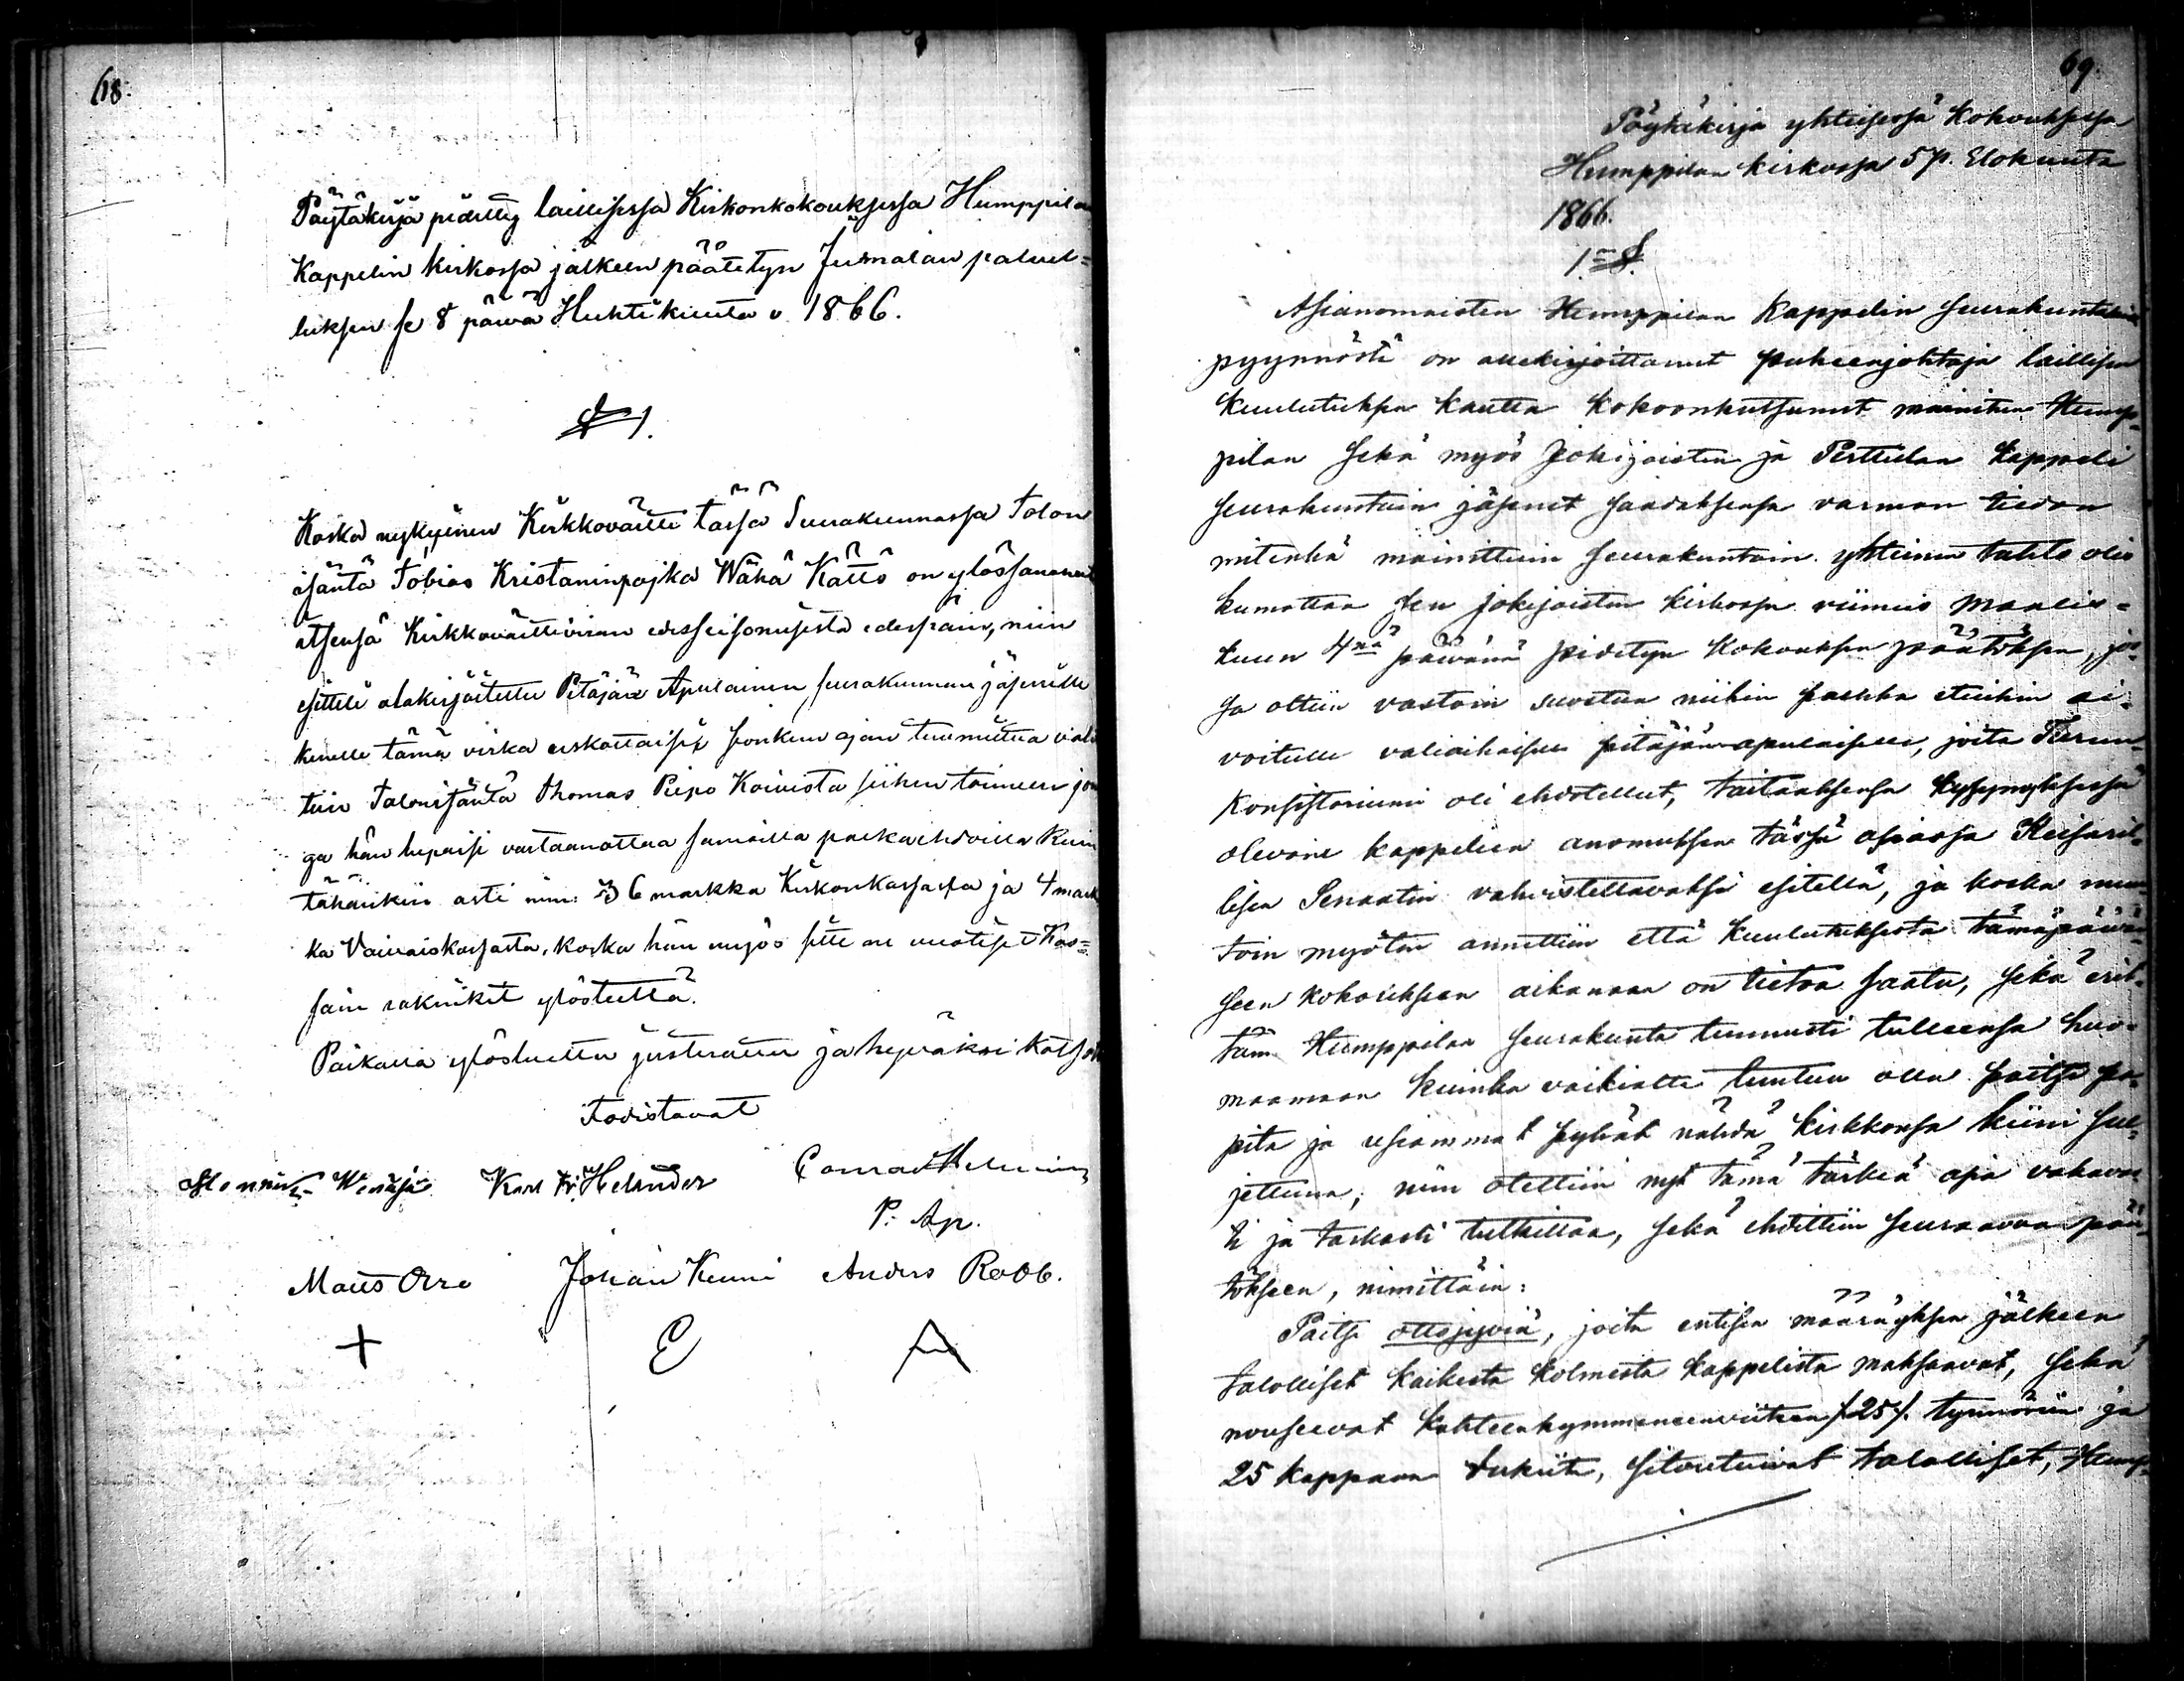 68.
Pöytäkirja pidetty laillisessa Kirkonkokouksessa Humppilan
Kappelin kirkossa jälkeen päätetyn Jumalan palvel=
luksen se 8 päivä Huhtikuuta v. 1866.
§ 1.
Koska nykyinen Kirkkovärtti tässä Seurakunnassa Talon
isäntä Tobias Kristaninpojka Wähä Kättö on ylössanonut
itsensä Kirkkovärttiviran edesseisomisesta edespäin, niin
esitteli alakirjoitettu Pitäjän Apulainen seurakunnan jäsenille
kenelle tämä virka uskottaisi jonkun ajan tunnettua valit
tiin Talonisäntä Thomas Piipo Koivisto siihen toimeen jon
ga hän lupaisi vastaanottaa samoilla palkaehdoilla kuin
tähänkin asti nim: 6 markka Kirkonkassasta ja 4 mark
ka Vaivaiskassasta, koska hän myös sitte on vuotiset Kas=
sain räkninkit ylösluettä.
Paikalla ylösluettu justerattu ja hyväksi katsottu
todistavat
Wenäjä Karl Fr: Helander Conrad Helenius
P: Ap.
Matts Orre Johan Kenni Anders Robb.
+ E A
69.
Pöytäkirja yhteisessä Kokouksessa
Humppilan kirkossa 5 p. Elokuuta
1866.
1.= §.
Asianomaisten Humppilan Kappelin seurakuntalaisten
pyynnöstä on allekirjoittanut puheenjohtaja laillisen
kuulutuksen kautta kokoonkutsunut mainitun Hump=
pilan sekä myös Jokijoisten ja Perttelan kappeli
seurakuntain jäsenet saadaksensa varman tiedon
mitenkä mainittuin seurakuntain yhteinen tahto olis
kumottaa sen Jokijoisten kirkossa viimeis Maalis=
kuun 4nä päivänä pidetyn kokouksen päätöksen, jos=
sa oltiin vastoin suostua niihin palkka etuihin ai=
voitulle väliaikaisen pitäjänapulaiselle, joita Turun
Konsistoriumi oli ehdotellut, taitaaksensa kysymyksessä
olevain kappelien anomuksen tässä asiassa Keisaril=
lisen Senaatin vahvistettavaksi esitellä, ja koska muu=
toin myöten annettiin että kuulutuksesta tämäpäiväi=
seen kokoukseen aikanaan on tietoa saatu, sekä erit=
täin Humppilan seurakunta tunnusti tulleensa huo=
maamaan kuinka vaikialta tuntuu olla paitsi pa=
pita ja useammat pyhät nähdä kirkkonsa kiini sul=
jettuna, niin otettiin nyt tämä tärkiä asia vakavas
ti ja tarkasti tutkittaa, sekä ehdittiin seuraavaan pää=
tökseen, nimittäin:
Paitsi ottojyviä, joita entisen määräyksen jälkeen
talolliset kaikesta kolmesta kappelista maksaavat, sekä
nouseevat kahteenkymmeneenviiteen /.25/. tynnöriin ja
25 kappaan rukiita, sitoutuivat talolliset, Hump=